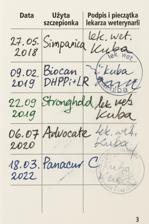 Data Użyta szczepionka Podpis i pieczątka lekarza weterynarii
27.05.2018 Simparica lek. wet. Kuba
09.02.2019 Biocan DHPPi+LR Kuba
22.09.2019 Stronghold lek. wet. Kuba
06.07.2020 Advocate
18.03.2022 Panacur
3